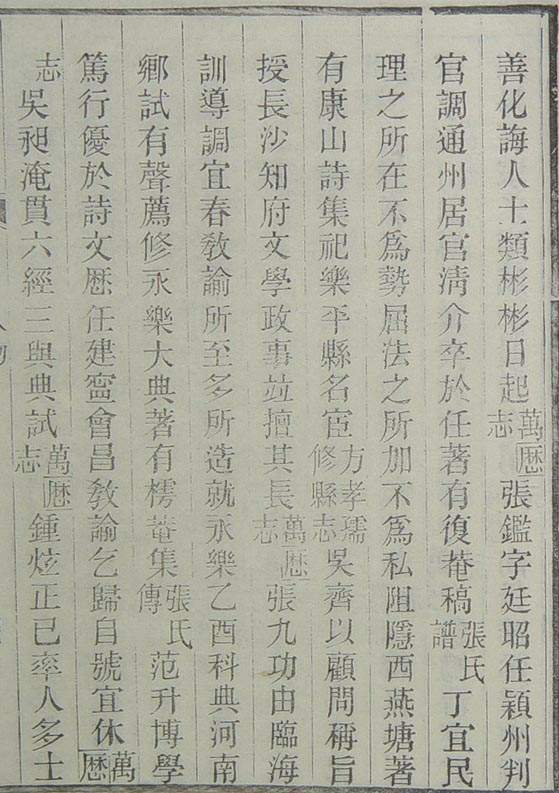 善化誨人士類彬彬日起萬厯志張鑑字廷昭任潁州判
官調通州居官淸介卒於任著有復菴稿張氏譜丁宜民
理之所在不爲勢屈法之所加不爲私阻隱西燕塘著
有康山詩集祀樂平縣名宦方孝孺修縣志吳齊以顧問稱旨
授長沙知府文學政事竝擅其長萬厯志張九功由臨海
訓導調宜春敎諭所至多所造就永樂乙酉科典河南
鄉試有聲薦修永樂大典著有樗菴集張氏傳范升博學
篤行優於詩文厯任建甯會昌敎諭乞歸自號宜休萬厯
志吳昶淹貫六經三與典試萬厯志鍾炫正已率人多士